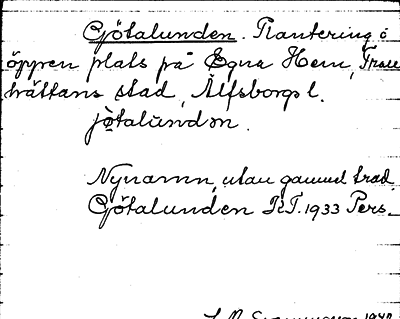 Götalunden. Plantering å
öppen plats på Egna Hem, Troll
hättans stad, Älfsborgs l.
jö̀talundən.
Nynamn, utan gammal trad.
Götalunden TT. 1933 Pers.